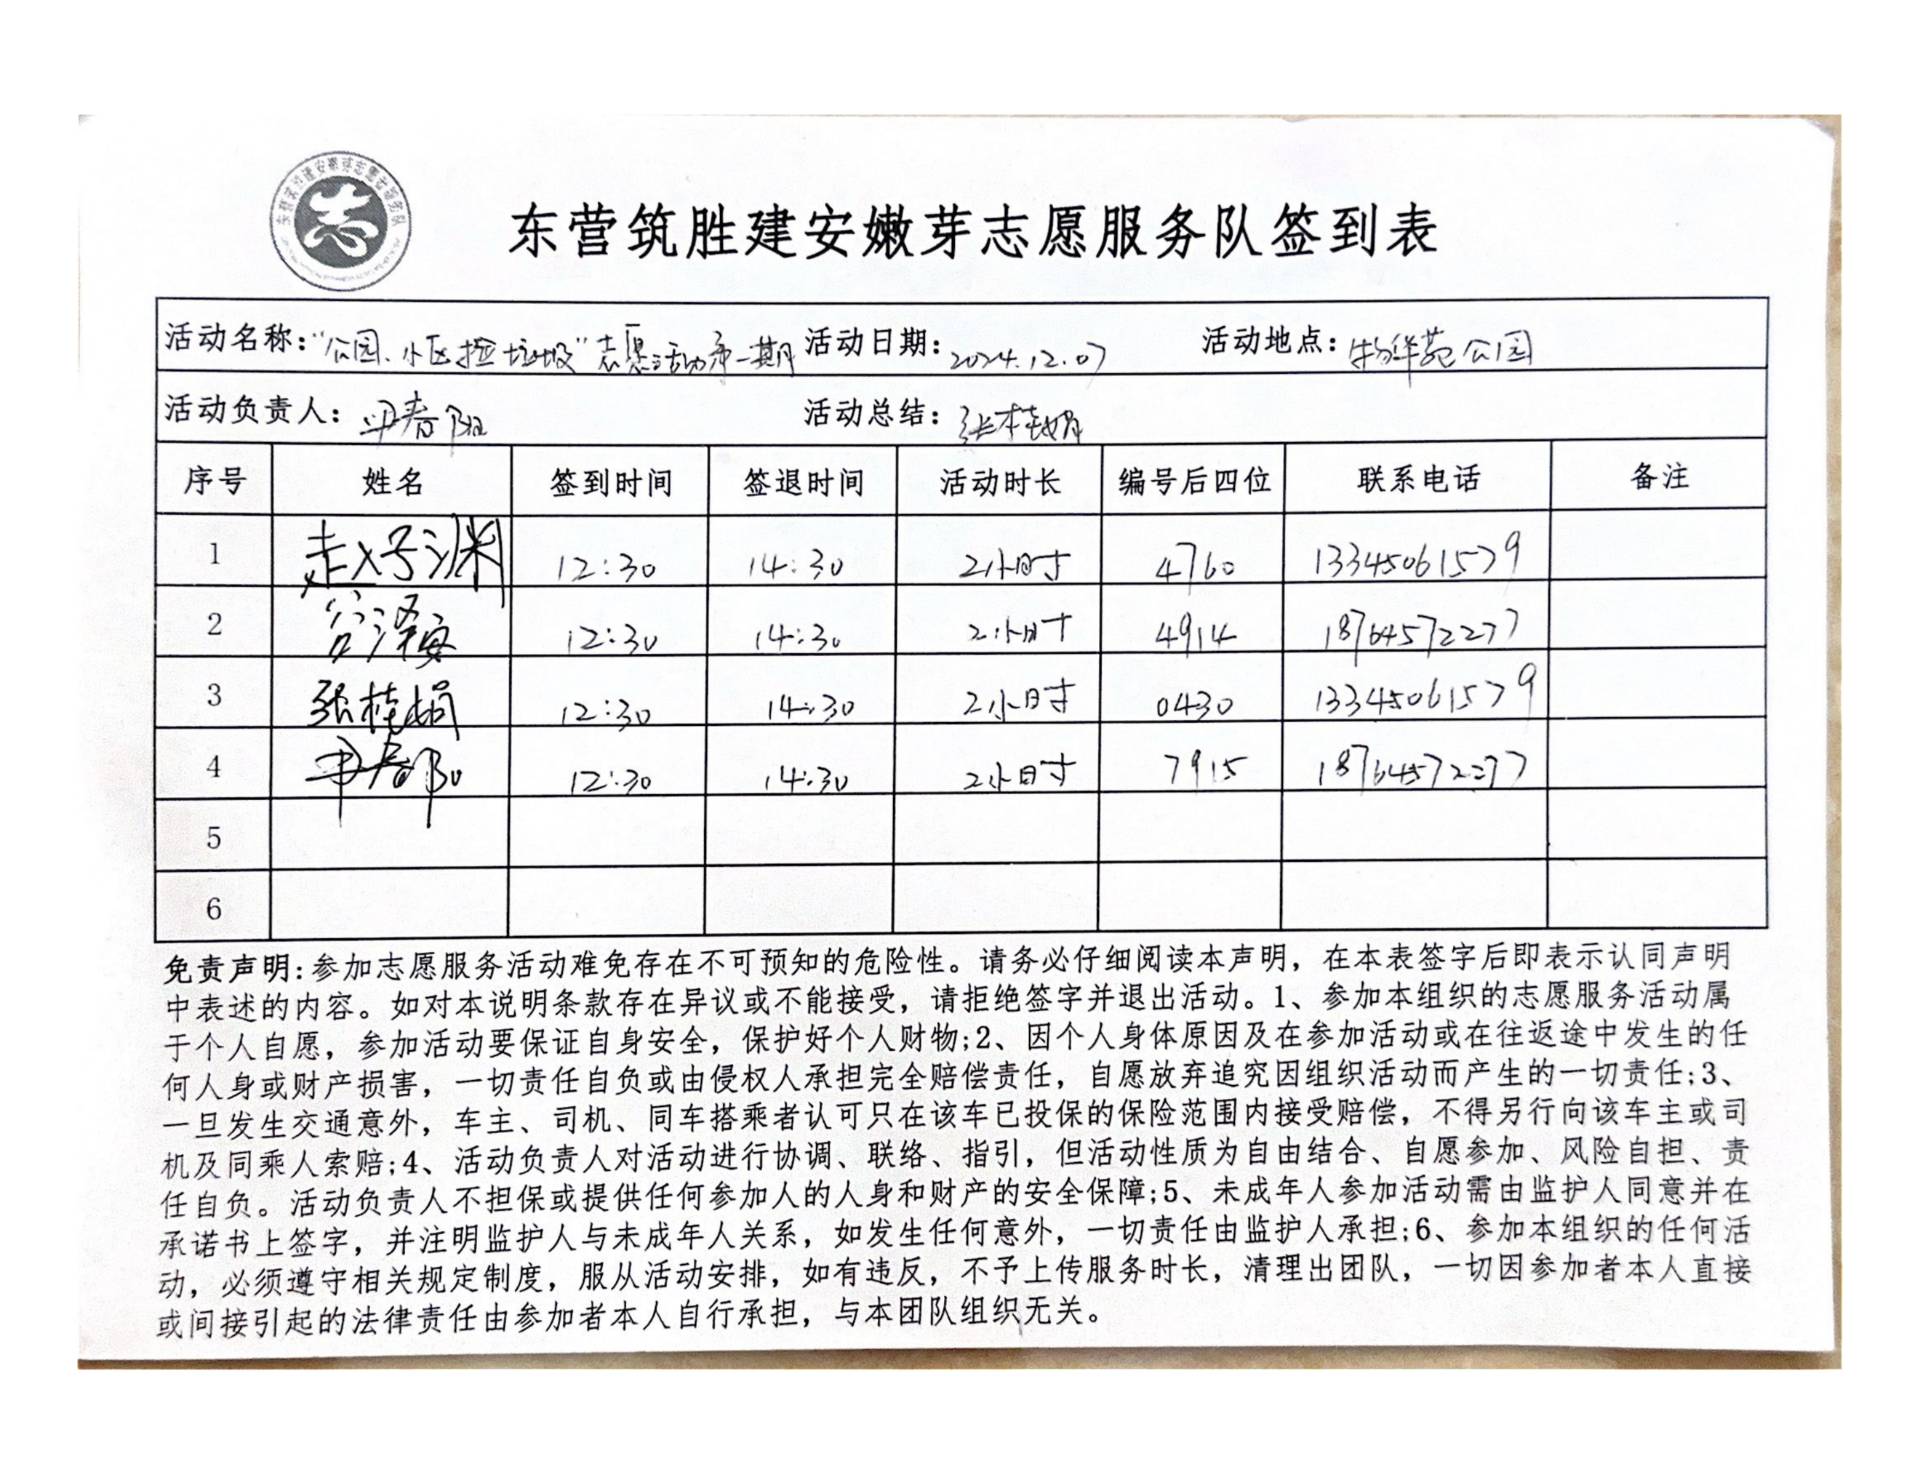 志
东营筑胜建安嫩芽志愿服务队签到表
活动名称:“公园、小区捡垃圾”志愿活动第一期 活动日期: 2024.12.07 活动地点: 物华苑公园
活动负责人: 申春阳 活动总结: 张桂娟
序号 姓名 签到时间 签退时间 活动时长 编号后四位 联系电话 备注
1 赵子渊 12:30 14:30 2小时 4760 13345061579
2 谷泽 12:30 14:30 2小时 4914 18764572277
3 张桂娟 12:30 14:30 2小时 0430 13345061579
4 申春阳 12:30 14:30 2小时 7915 18764572277
5
6
免责声明:参加志愿服务活动难免存在不可预知的危险性。请务必仔细阅读本声明，在本表签字后即表示认同声明
中表述的内容。如对本说明条款存在异议或不能接受，请拒绝签字并退出活动。1、参加本组织的志愿服务活动属
于个人自愿，参加活动要保证自身安全，保护好个人财物;2、因个人身体原因及在参加活动或在往返途中发生的任
何人身或财产损害，一切责任自负或由侵权人承担完全赔偿责任，自愿放弃追究因组织活动而产生的一切责任;3、
一旦发生交通意外，车主、司机、同车搭乘者认可只在该车已投保的保险范围内接受赔偿，不得另行向该车主或司
机及同乘人索赔;4、活动负责人对活动进行协调、联络、指引，但活动性质为自由结合、自愿参加、风险自担、责
任自负。活动负责人不担保或提供任何参加人的人身和财产的安全保障;5、未成年人参加活动需由监护人同意并在
承诺书上签字，并注明监护人与未成年人关系，如发生任何意外，一切责任由监护人承担;6、参加本组织的任何活
动，必须遵守相关规定制度，服从活动安排，如有违反，不予上传服务时长，清理出团队，一切因参加者本人直接
或间接引起的法律责任由参加者本人自行承担，与本团队组织无关。